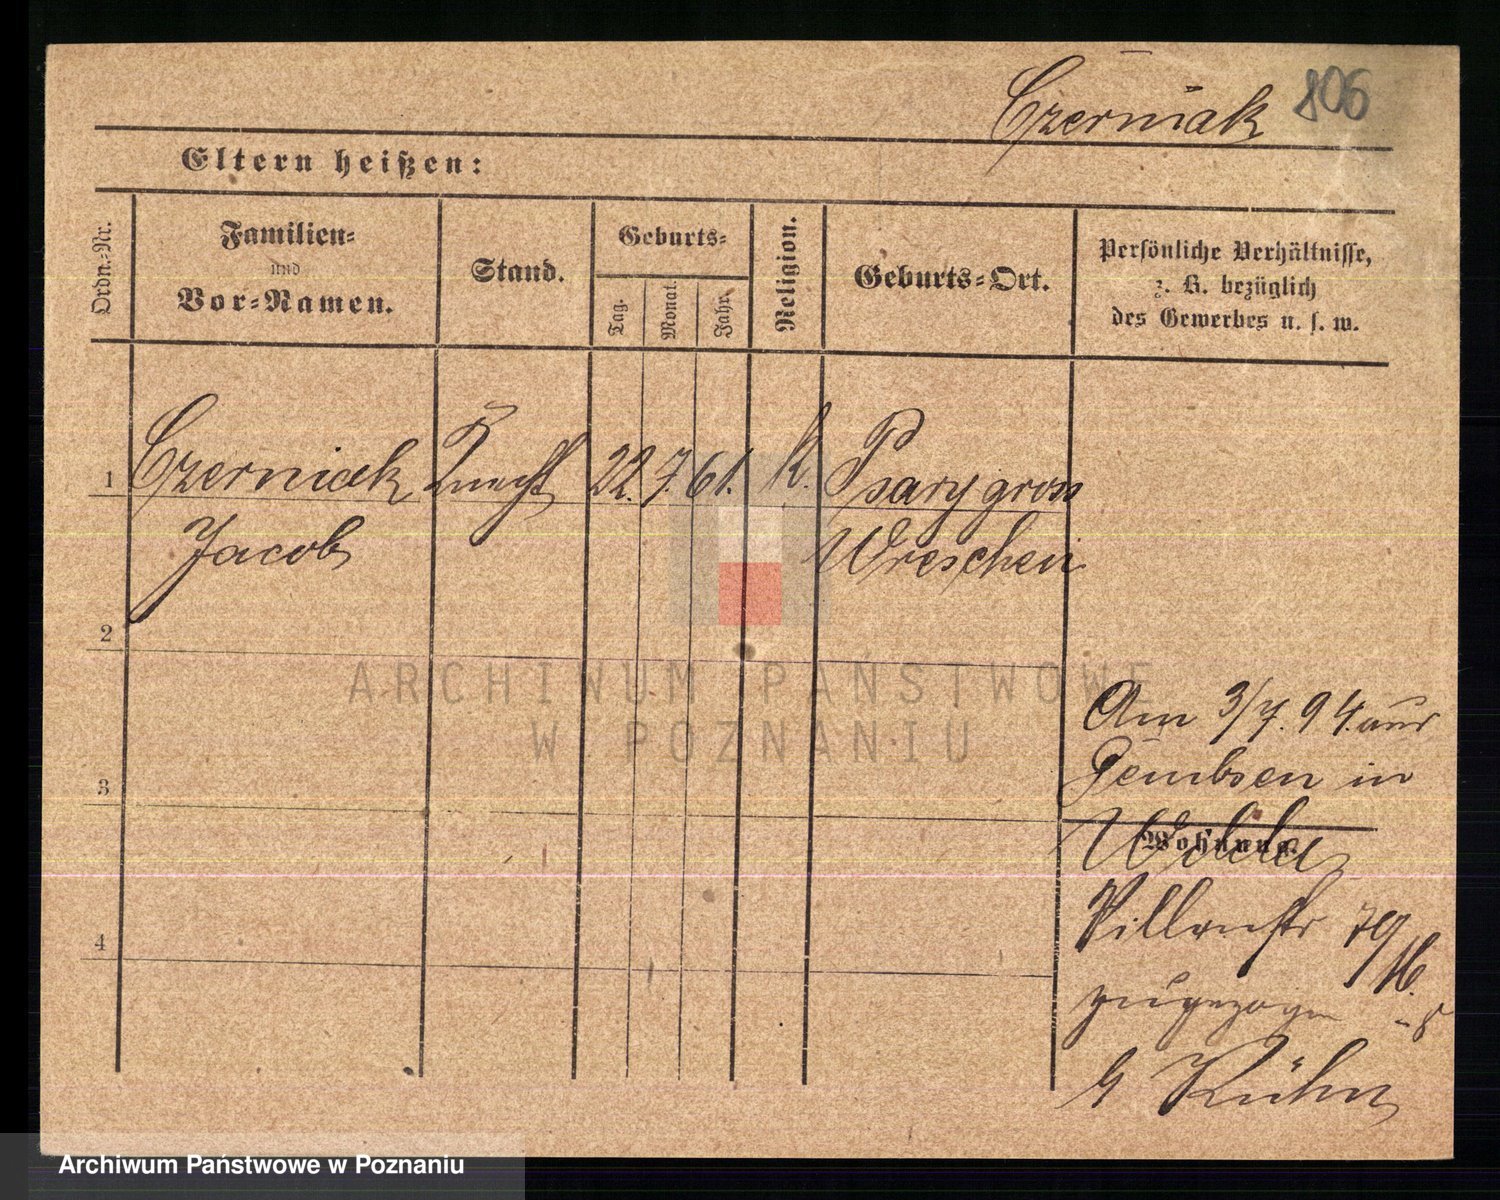 Czerniak 806
Eltern heißen:
Ordn.-Nr.
Familien-
und
Vor-Namen.
Stand.
Geburts-
Tag.
Monat.
Jahr.
Religion.
Geburts-Ort.
Persönliche Verhältnisse,
z. B. bezüglich
des Gewerbes u. s. w.
1 Czerniak Knecht 22. 7. 61. k. Psary gross
Jacob Wreschen
2
3
4
Am 3/7. 94. aus
Pembsen in
Wohnung.
Wilda
Villenstr
zugezogen
Kühn
ARCHIWUM PAŃSTWOWE
W POZNANIU
Archiwum Państwowe w Poznaniu